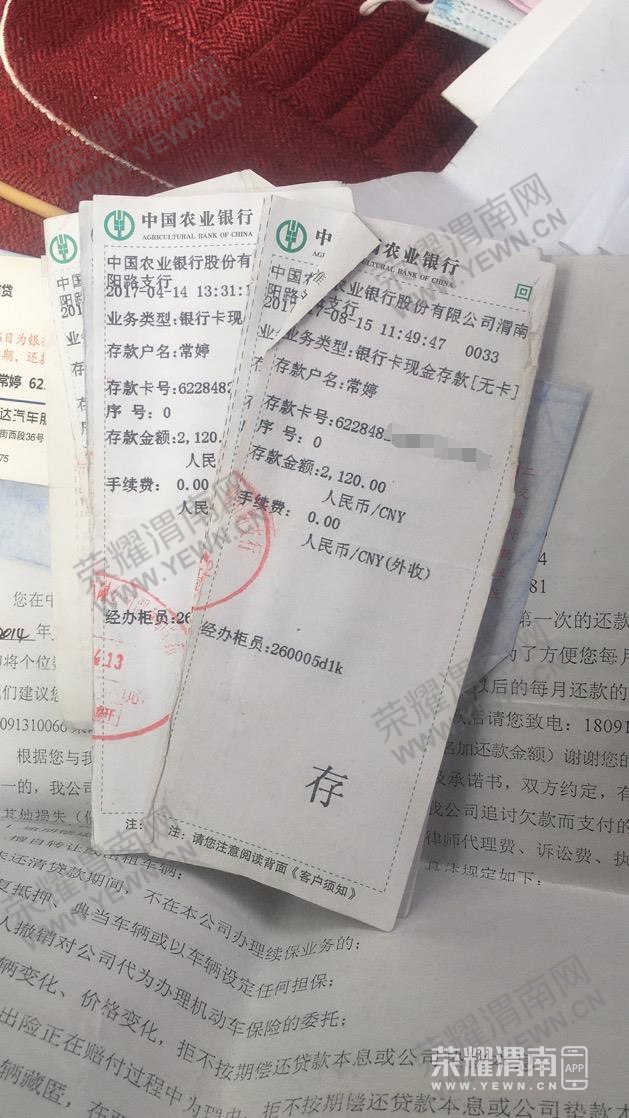 中国农业银行
AGRICULTURAL BANK OF CHINA
中国农业银行股份有限公司渭南
阳路支行
11:49:47 0033
业务类型:银行卡现金存款[无卡]
存款户名:常婷
存款卡号:622848
序 号: 0
存款金额:2,120.00
人民币/CNY
手续费: 0.00
人民币/CNY(外收)
经办柜员:260005d1k
存
注: 请您注意阅读背面《客户须知》
回
中国农业银行
AGRICULTURAL BANK OF CHINA
中国农业银行股份有
阳路支行
2017-04-14 13:31:1
业务类型:银行卡现
存款户名:常婷
存款卡号:6228483
序 号: 0
存款金额:2,120.
人民
手续费: 0.00
人民
经办柜员:26
注:
中国
阳路
贷
日为银
常婷 62
达汽车服
街西段36号
75
81
您在中
2014 年
将个位数
们建议您
8091310066
根据您与我
一的,我公司
其他损失(
第一次的还款
为了方便您每月
以后的每月还款的
后请您致电:18091
名加还款金额)谢谢您的
及承诺书,双方约定,有
我公司追讨欠款而支付的
律师代理费、诉讼费、执
具体规定如下:
擅自转让或出租车辆;
未还清贷款期间,不在本公司办理续保业务的;
复抵押、典当车辆或以车辆设定任何担保;
人撤销对公司代为办理机动车保险的委托;
辆变化、价格变化,拒不按期偿还贷款本息或公司
出险正在赔付过程中为理由,拒不按期偿还贷款本息或公司垫款本
辆藏匿,在
荣耀渭南网
WWW.YEWN.CN
荣耀渭南 APP
WWW.YEWN.CN